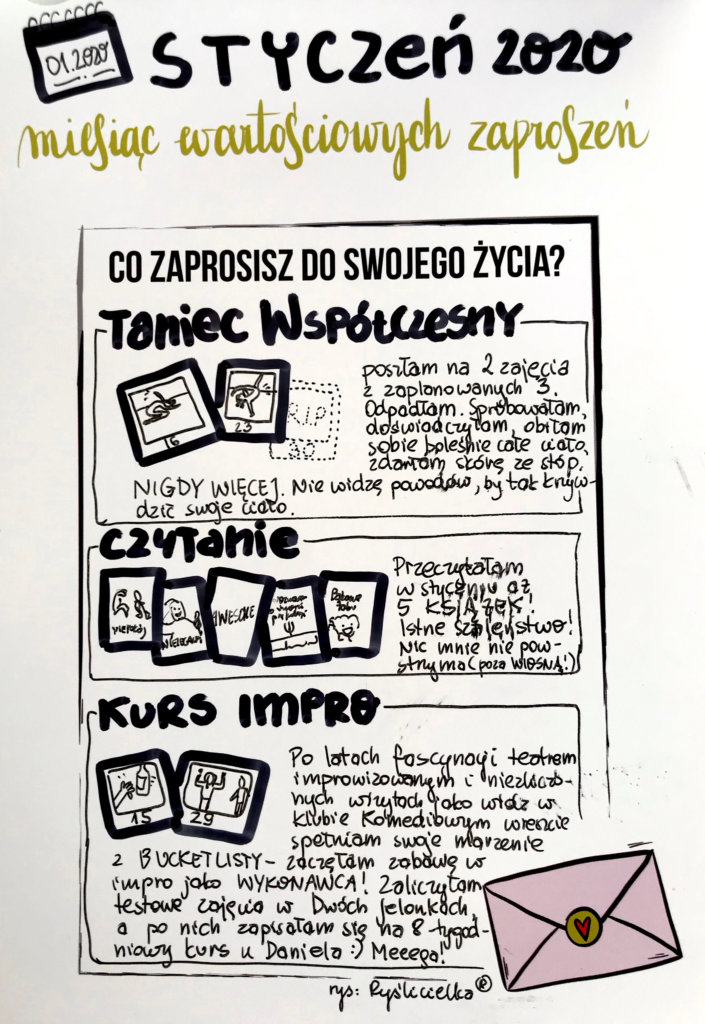 01.2020
STYCZEŃ 2020
miesiąc wartościowych zaproszeń
CO ZAPROSISZ DO SWOJEGO ŻYCIA?
Taniec Współczesny
16
23
RIP
30
poszłam na 2 zajęcia
z zaplanowanych 3.
Odpadłam. Spróbowałam,
doświadczyłam, obiłam
sobie boleśnie całe ciało,
zdarłam skórę ze stóp.
NIGDY WIĘCEJ. Nie widzę powodów, by tak krzyw-
dzić swoje ciało.
Czytanie
AWESOME
Bąbowe
Przeczytałam
w styczniu aż
5 KSIĄŻEK!
Istne szaleństwo!
Nic mnie nie pow-
strzyma (poza WIOSNĄ!)
KURS IMPRO
15
29
Po latach fascynacji teatrem
improwizowanym i niezliczo-
nych wizytach jako widz w
Klubie Komediowym wreszcie
spełniam swoje marzenie
z BUCKETLISTY - zaczęłam zabawę w
impro jako WYKONAWCA! Zaliczyłam
testowe zajęcia w Dwóch Jelonkach,
a po nich zapisałam się na 8-tygod-
niowy kurs u Daniela :) Meeega!
rys: Ryślicielka